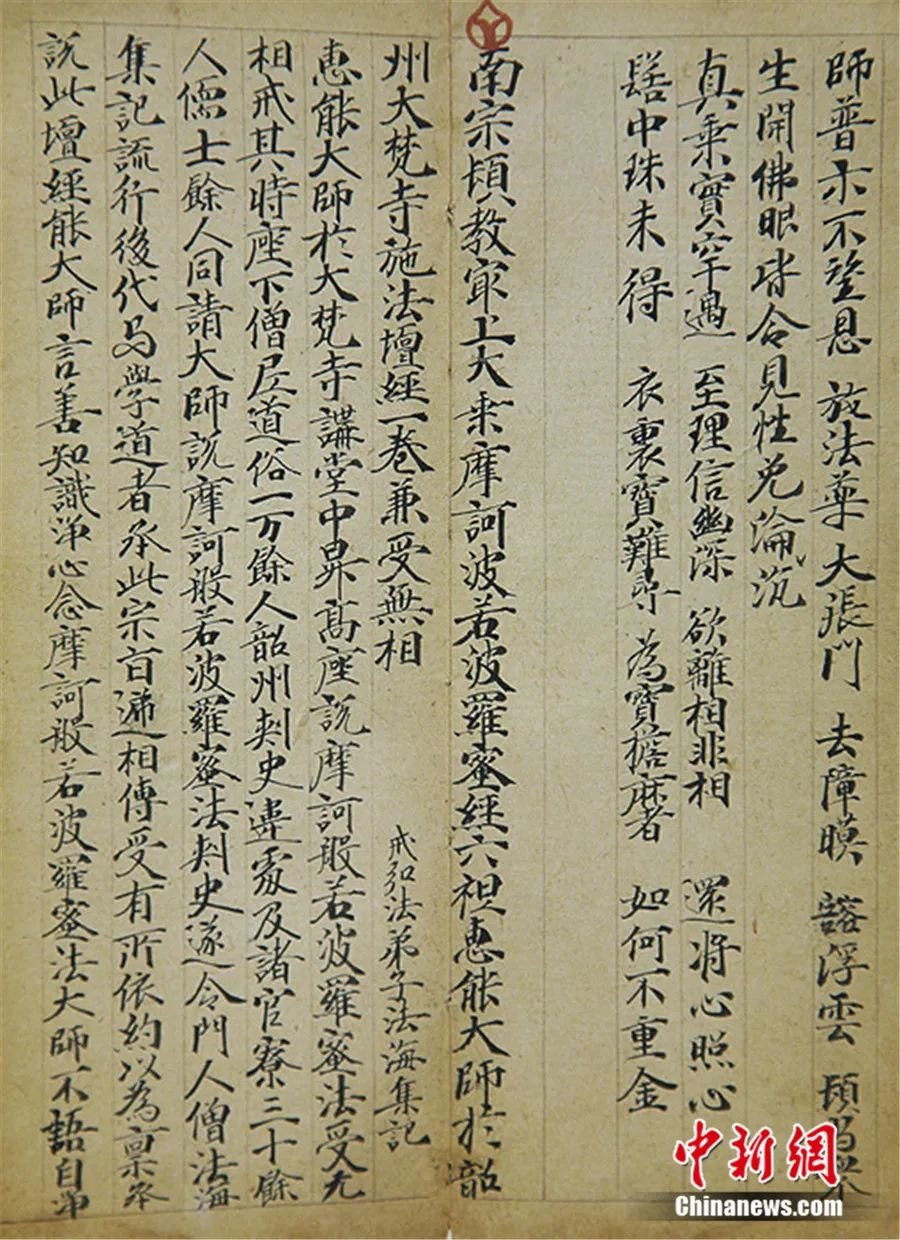 師普示不望恩 放法藥大張門 去障膜 豁浮雲 頓為眾
生開佛眼皆合見性免淪沉
真乘實罕遇 至理信幽深 欲離相非相 還將心照心
髻中珠未得 衣裏寶難尋 為寶擔麻者 如何不重金
南宗頓教冣上大乘摩訶波若波羅蜜經六祖惠能大師於韶
州大梵寺施法壇經一卷兼受無相 戒弘法弟子法海集記
惠能大師於大梵寺講堂中昇高座說摩訶般若波羅蜜法受无
相戒其時座下僧尼道俗一万餘人韶州刺史違處及諸官寮三十餘
人儒士餘人同請大師說摩訶般若波羅蜜法刺史遂令門人僧法海
集記流行後代与學道者承此宗旨遞相傳受有所依約以為稟承
說此壇經能大師言善知識淨心念摩訶般若波羅蜜法大師不語自淨
中新網
Chinanews.com